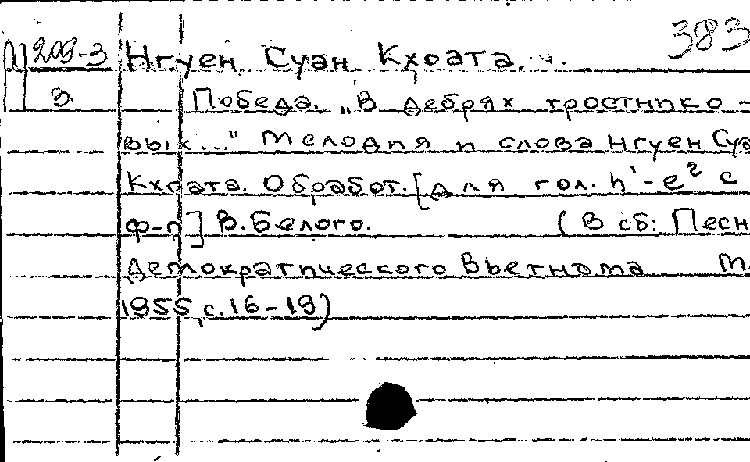 383
М 209-3 Нгуен Суан Кхоата...
3 Победа. "В дебрях тростнико-
вых..." Мелодия и слова Нгуен Суа
Кхоата. Обработ. [для гол. h¹-e² с
ф-п] В. Белого. (В сб: Песн
Демократического Вьетнама М.
1955, с. 16-19)